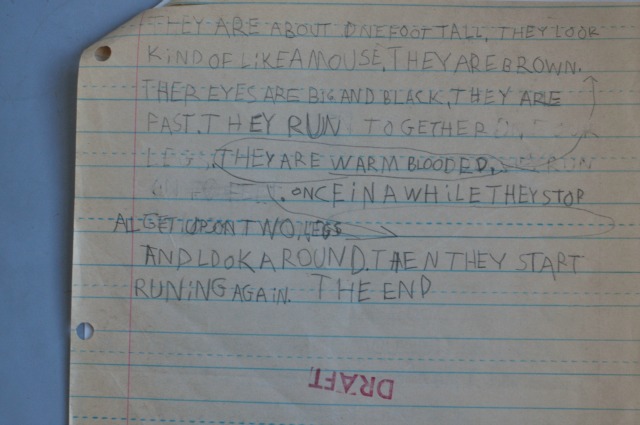 THEY ARE ABOUT ONE FOOT TALL. THEY LOOK
KIND OF LIKE A MOUSE. THEY ARE BROWN.
THER EYES ARE BIG AND BLACK. THEY ARE
FAST. THEY RUN TOGETHER
THEY ARE WARM BLOODED. RUN
. ONCE IN A WHILE THEY STOP
GET UP ON TWO LEGS
AND LOOK AROUND. THEN THEY START
RUNING AGAIN. THE END
DRAFT